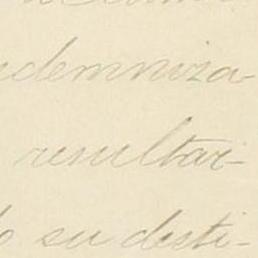 ndemniza-
resultar-
o su desti-